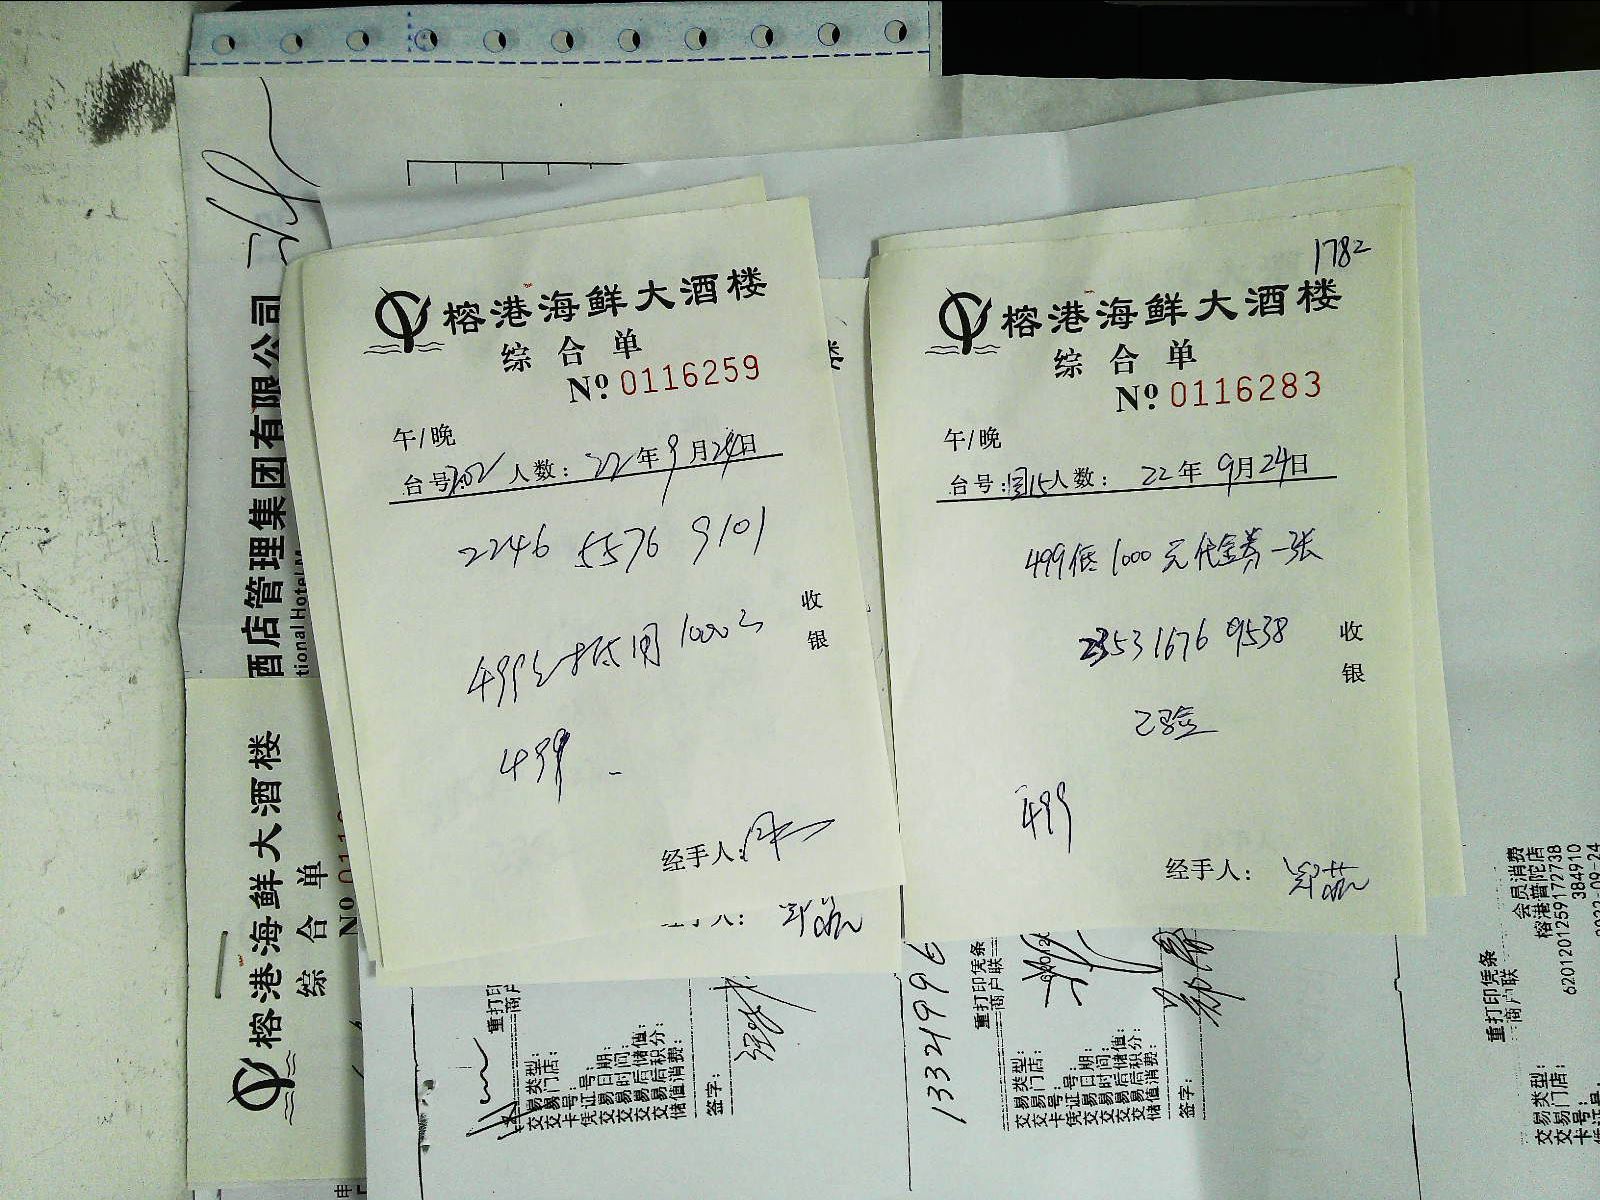 榕港海鲜大酒楼
综合单
No. 0116259
午/晚
台号:202 人数: 22年9月24日
2246 5576 9101
499元抵用1000元
499 -
收
银
经手人:
榕港海鲜大酒楼
综合单
No. 0116283
1782
午/晚
台号: 人数: 22年9月24日
499低1000元代金券一张
2353 1676 9538
已验
499
收
银
经手人:
酒店管理集团有限公司
tional Hotel M
榕港海鲜大酒楼
综合单
No 011
重打印
商户
交易类型:
交易门店:
卡号:
凭证号:
交易日期:
交易时间:
交易后储值:
交易后积分:
储值消费:
签字:
13321996
重打印凭条
商户联
交易类型:
交易门店:
卡号:
凭证号:
交易日期:
交易时间:
交易后储值:
交易后积分:
储值消费:
签字:
重打印凭条
商户联
交易类型: 会员消费
交易门店: 榕港普陀店
卡号: 6201201259172738
凭证号: 384910
2022-09-24